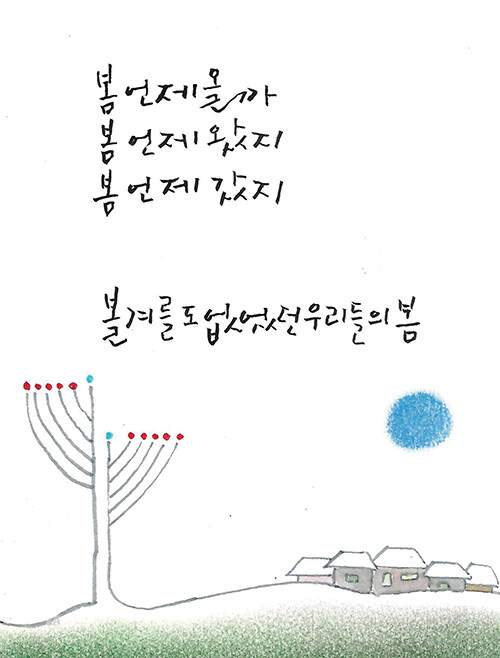 봄 언제 올까
봄 언제 왔지
봄 언제 갔지
볼 겨를도 없었던 우리들의 봄